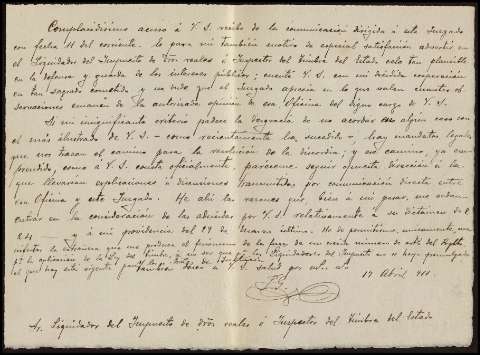 Complacidísimo acuso á V. S. recibo de la comunicación dirigida á este Juzgado
con fecha 11 del corriente. Es para mi también motivo de especial satisfacción advertir en
el Liquidador del Impuesto de Dros reales é Inspector del Timbre del Estado celo tan plausible
en la defensa y guarda de los intereses públicos; cuente V. S. con mi decidida cooperación
en tan sagrado cometido y no dude que el Juzgado aprecia en lo que valen cuantas ob
servaciones emanen de la autorizada opinión de esa Oficina del digno cargo de V. S.
Si mi insignificante criterio padece la desgracia de no acordar en algún caso con
el más ilustrado de V. S. - como recientemente ha sucedido -, hay mandatos legales
que nos trazan el camino para la resolución de la discordia; y un camino, ya em
prendido, como á V. S. consta oficialmente, pareceme seguir opuesta dirección á la
que llevarían explicaciones ó discusiones transmitidas por comunicación directa entre
esa Oficina y este Juzgado. He ahí la razones que, bien á mi pesar, me vedan
entrar en la consideración de las aducidas por V. S. relativamente á su dictamen del
24 y á mi providencia del 29 de último. He de permitirme, unicamente, ma
nifestar la extrañeza que me produce el
de la Ley del Timbre, á no ser que los Liquidadores del Impuesto
el que hoy esta vigente
17 Abril 911.
Sr. Liquidador del Impuesto de dros reales é Inspector del Timbre del Estado